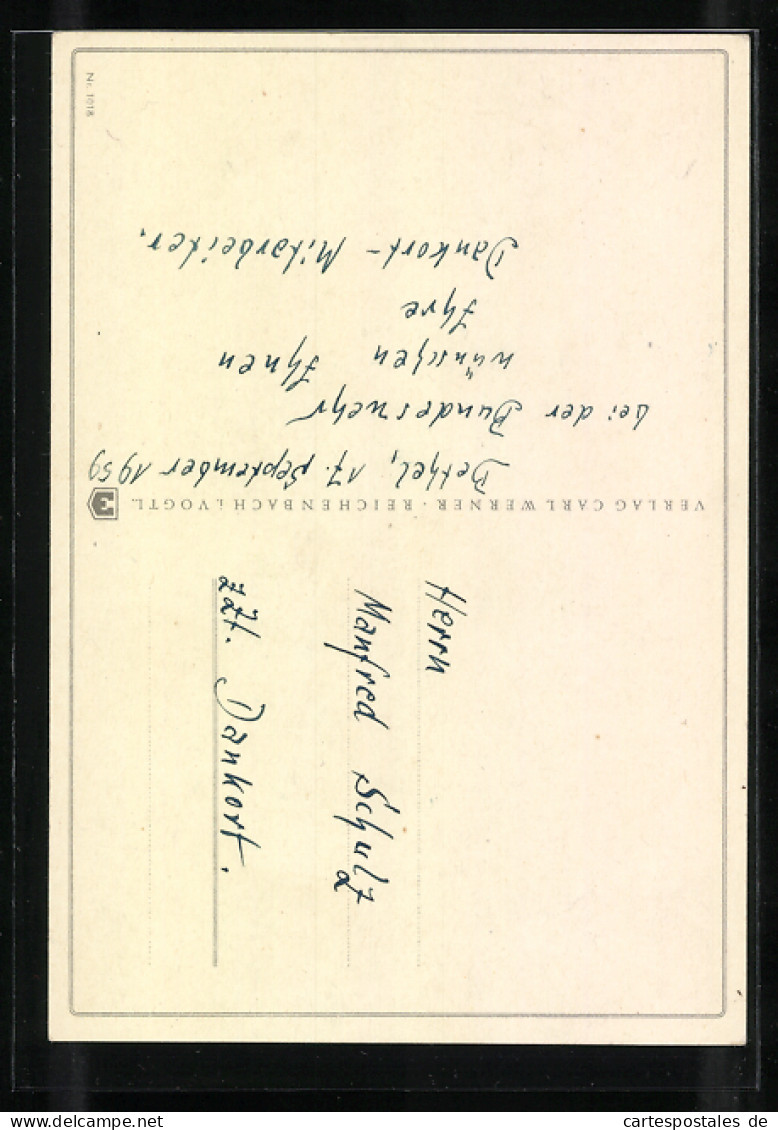 Nr. 1018
Bethel, 17. September 1959
bei der Bundeswehr
wünschen Ihnen
Ihre
Dankort - Mitarbeiter.
VERLAG CARL WERNER · REICHENBACH i. VOGTL.
Herrn
Manfred Schulz
zZt. Dankort.
cartespostales de